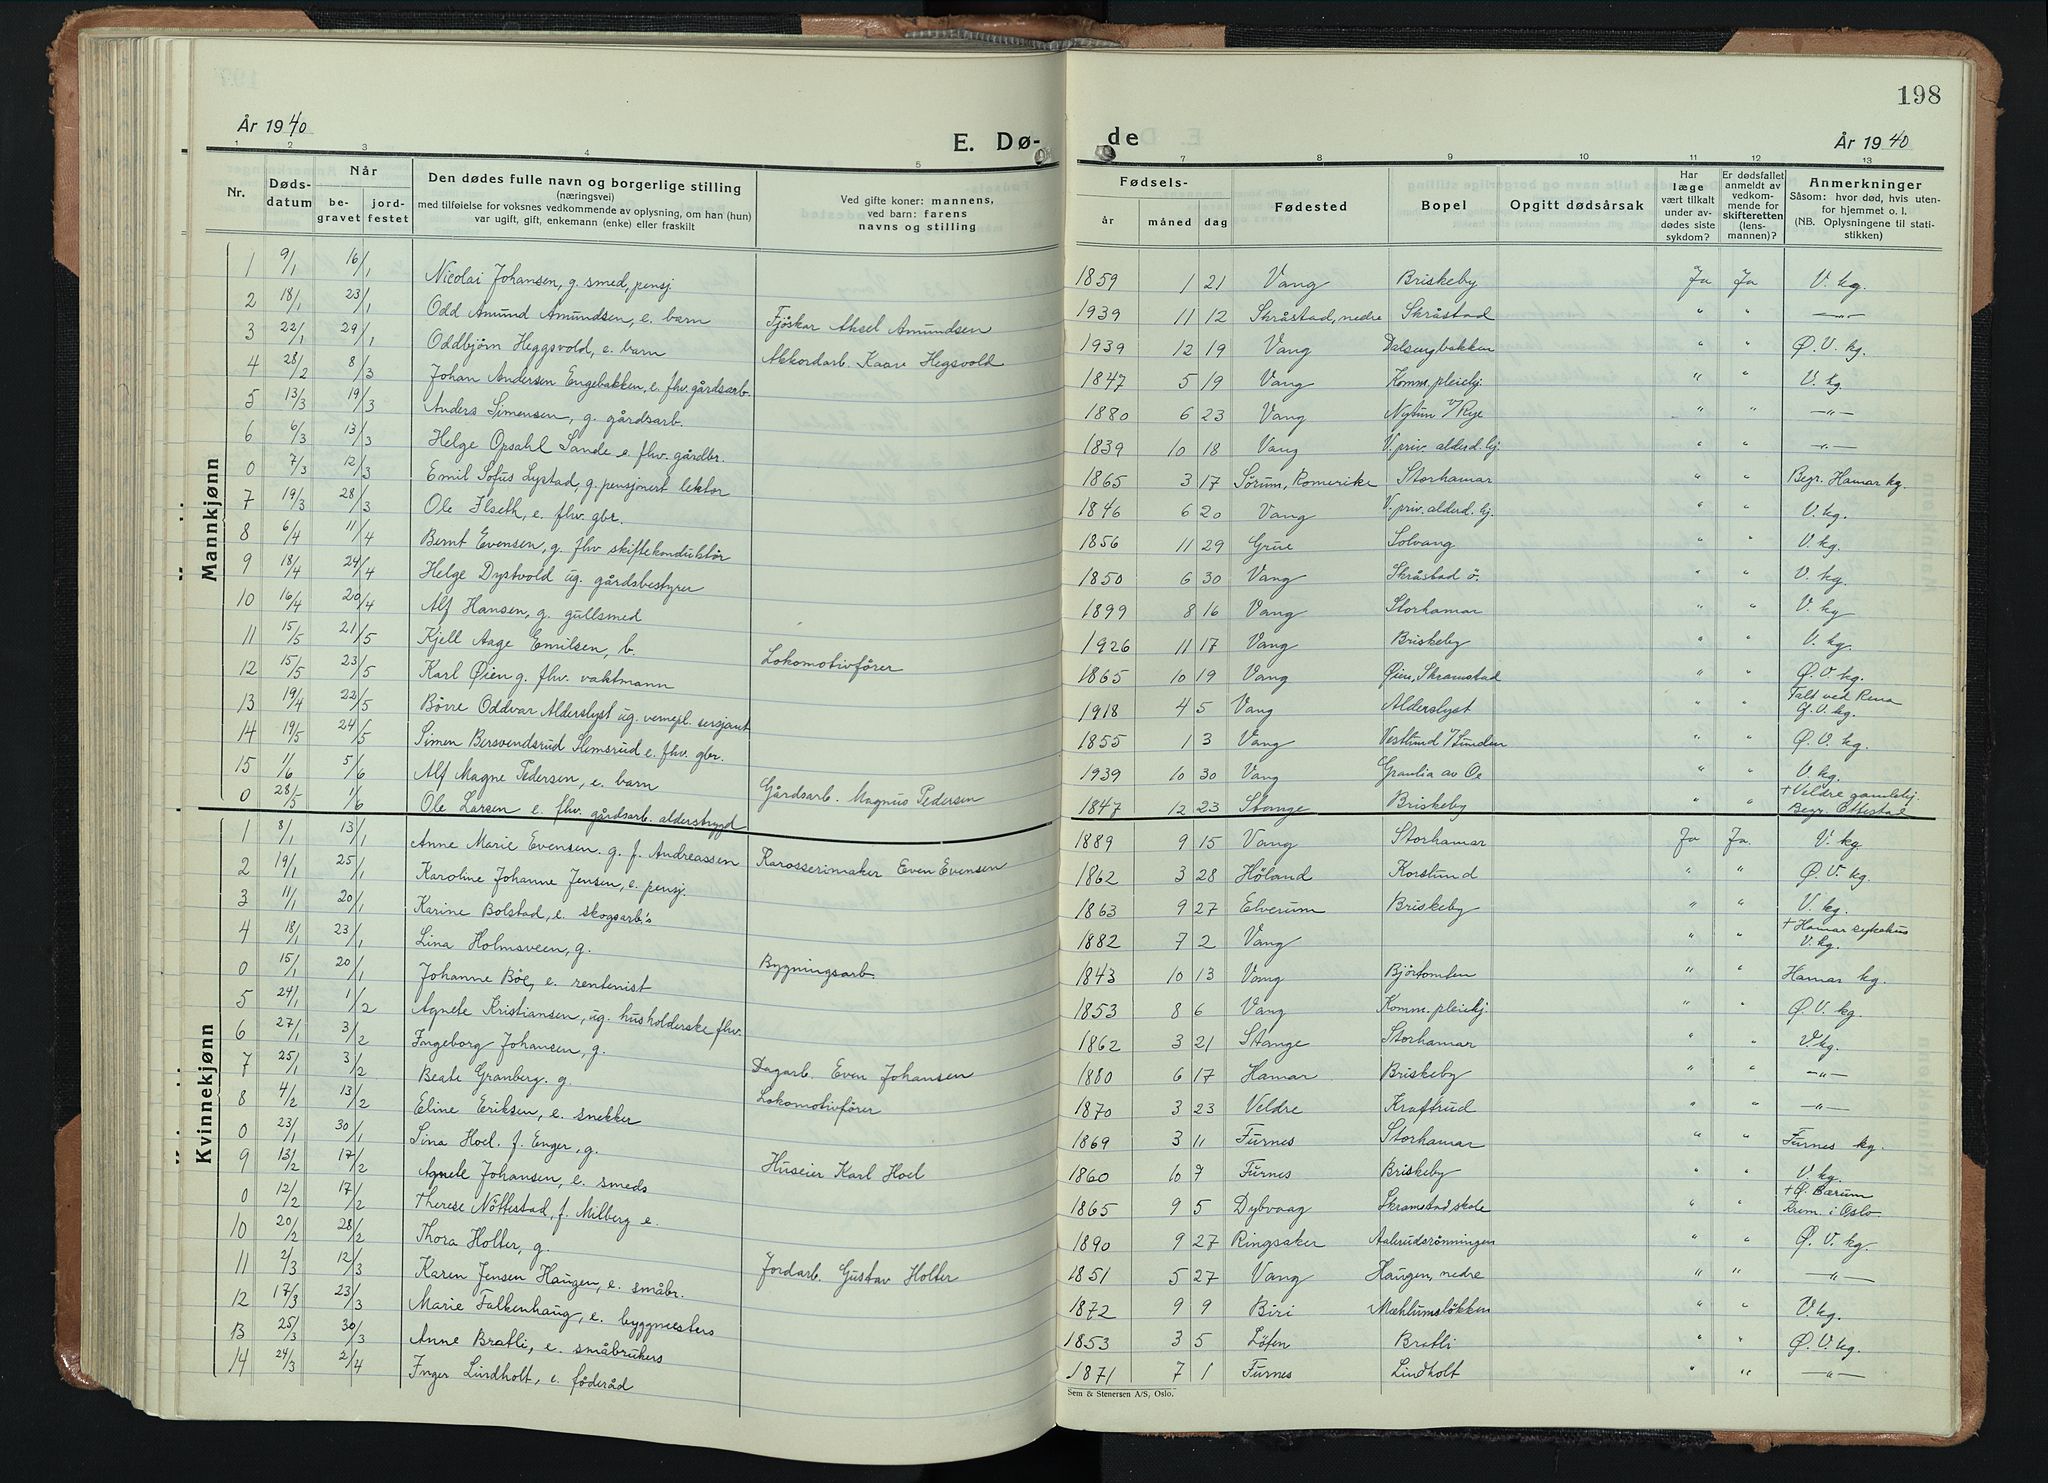 198
År 1940
E. Dø-
de
År 1940
1 2 3 4 5 7 8 9 10 11 12 13
Nr.
Døds-
datum
Når
be-
gravet
jord-
festet
Den dødes fulle navn og borgerlige stilling
(næringsvei)
med tilføielse for voksnes vedkommende av oplysning, om han (hun)
var ugift, gift, enkemann (enke) eller fraskilt
Ved gifte koner: mannens,
ved barn: farens
navns og stilling
Fødsels-
år måned dag
Fødested
Bopel
Opgitt dødsårsak
Har
læge
vært tilkalt
under av-
dødes siste
sykdom?
Er dødsfallet
anmeldt av
vedkom-
mende for
skifteretten
(lens-
mannen)?
Anmerkninger
Såsom: hvor død, hvis uten-
for hjemmet o. l.
(NB. Oplysningene til stati-
stikken)
Mannkjønn
1 9/1 16/1 Nicolai Johansen, g. smed, pensj 1859 1 21 Vang Briskeby Ja Ja V. kg.
2 18/1 23/1 Odd Amund Amundsen, e. barn Fjøskar Aksel Amundsen 1939 11 12 Skråstad, nedre Skråstad " " —"—
3 22/1 29/1 Oddbjørn Heggsvold, e. barn Akkordarb. Kaare Hegsvold 1939 12 19 Vang Dalsengbakken " " Ø. V. kg.
4 28/2 8/3 Johan Andersen Engebakken, e. fhv. gårdsarb. 1847 5 19 Vang Komm. pleiehj. " " V. kg.
5 13/3 19/3 Anders Simensen, g. gårdsarb. 1880 6 23 Vang Nytun v/Rye " " —"—
6 6/3 13/3 Helge Opsahl Sande e. fhv. gårdbr. 1839 10 18 Vang V. priv. alderd. hj. " " —"—
0 7/3 12/3 Emil Sofus Lystad, g. pensjonert lektor 1865 3 17 Sørum, Romerike Storhamar " " Begr. Hamar kg.
7 19/3 28/3 Ole Ilseth, e. fhv. gbr. 1846 6 20 Vang V. priv. alderd. hj. " " V. kg.
8 6/4 11/4 Bernt Evensen, g. fhv skiftekonduktør 1856 11 29 Grue Solvang " " V. kg.
9 18/4 24/4 Helge Dystvold ug. gårdsbestyrer 1850 6 30 Vang Skråstad ö. " " V. kg.
10 16/4 20/4 Alf Hansen, g. gullsmed 1899 8 16 Vang Storhamar " " V. kg
11 15/5 21/5 Kjell Aage Emilsen, b. Lokomotivfører 1926 11 17 Vang Briskeby " " V. kg.
12 15/5 23/5 Karl Øien g. fhv. vaktmann 1865 10 19 Vang Øien, Skramstad " " Ø. V. kg.
13 19/4 22/5 Börre Oddvar Alderslyst ug. vernepl. sersjant 1918 4 5 Vang Alderslyst " " Falt ved Rena
Ø. V. kg.
14 19/5 24/5 Simen Bersvendsrud Slemsrud e. fhv. gbr. 1855 1 3 Vang Vestlund v/Lunden " " Ø. V. kg.
15 1/6 5/6 Alf Magne Pedersen, e. barn Gårdsarb. Magnus Pedersen 1939 10 30 Vang Granlia av Oe " " V. kg.
0 28/5 1/6 Ole Larsen e. fhv. gårdsarb. alderstrygd 1847 12 23 Stange Briskeby " " + Veldre gamlehj.
Begr. Ottestad
Kvinnekjønn
1 8/1 13/1 Anne Marie Evensen. g. f. Andreassen Karosserimaker Even Evensen 1889 9 15 Vang Storhamar Ja Ja. V. kg.
2 19/1 25/1 Karoline Johanne Jensen, e. pensj. 1862 3 28 Höland Korslund " " Ø. V. kg.
3 11/1 20/1 Karine Bolstad, e. skogsarb's 1863 9 27 Elverum Briskeby " " V. kg.
4 18/1 23/1 Lina Holmsveen, g. Bygningsarb. 1882 7 2 Vang " " + Hamar sykehus
V. kg.
0 15/1 20/1 Johanne Böe, e. rentenist 1843 10 13 Vang Björtomten " " Hamar kg.
5 24/1 1/2 Agnete Kristiansen, ug. husholderske fhv. 1853 8 6 Vang Komm. pleiehj. " " Ø. V. kg.
6 27/1 3/2 Ingeborg Johansen, g. Dagarb. Even Johansen 1862 3 21 Stange Storhamar " " V. kg.
7 25/1 3/2 Beate Granberg. g. Lokomotivfører 1880 6 17 Hamar Briskeby " " —"—
8 4/2 13/2 Eline Eriksen, e. snekker 1870 3 23 Veldre Kraftrud " " —"—
0 23/1 30/1 Lina Hoel. f. Enger, g. Huseier Karl Hoel 1869 3 11 Furnes Storhamar " " Furnes kg.
9 13/2 17/2 Agnete Johansen, e. smeds 1860 10 7 Furnes Briskeby " " V. kg.
0 12/2 17/2 Therese Nöttestad, f. Milberg e. 1865 9 5 Dybvaag Skramstad skole " " + Ø. Bærum
Krem. i Oslo.
10 20/2 28/2 Thora Holter, g. Jordarb. Gustav Holter 1890 9 27 Ringsaker Aalerudsrönningen " " Ø. V. kg.
11 2/3 12/3 Karen Jensen Haugen, e. småbr. 1851 5 27 Vang Haugen, nedre " " —"—
12 17/3 23/3 Marie Falkenhaug, e. byggmesters 1872 9 9 Biri Mæhlumsløkken " " V. kg.
13 25/3 30/3 Anne Bratli, e. småbrukers 1853 3 5 Löten Bratli " " Ø. V. kg.
14 24/3 2/4 Inger Lindholt, e. föderåd 1871 7 1 Furnes Lindholt " " —"—
Sem & Stenersen A/S, Oslo.